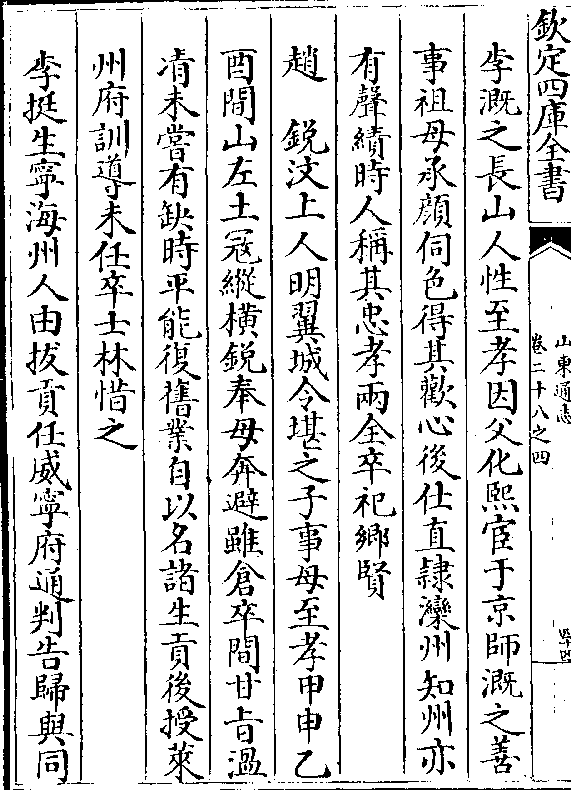 欽定四庫全書
山東通志
卷二十八之四
李溉之長山人性至孝因父化熙宦于京師溉之善
事祖母承顔伺色得其歡心後仕直隷灤州知州亦
有聲績時人稱其忠孝兩全卒祀鄉賢
趙　鋭汶上人明翼城令堪之子事母至孝甲申乙
酉間山左土冦縱横鋭奉母奔避雖倉卒間甘旨温
凊未嘗有缺時平能復舊業自以名諸生貢後授萊
州府訓導未任卒士林惜之
李挺生寧海州人由拔貢任威寧府通判告歸與同